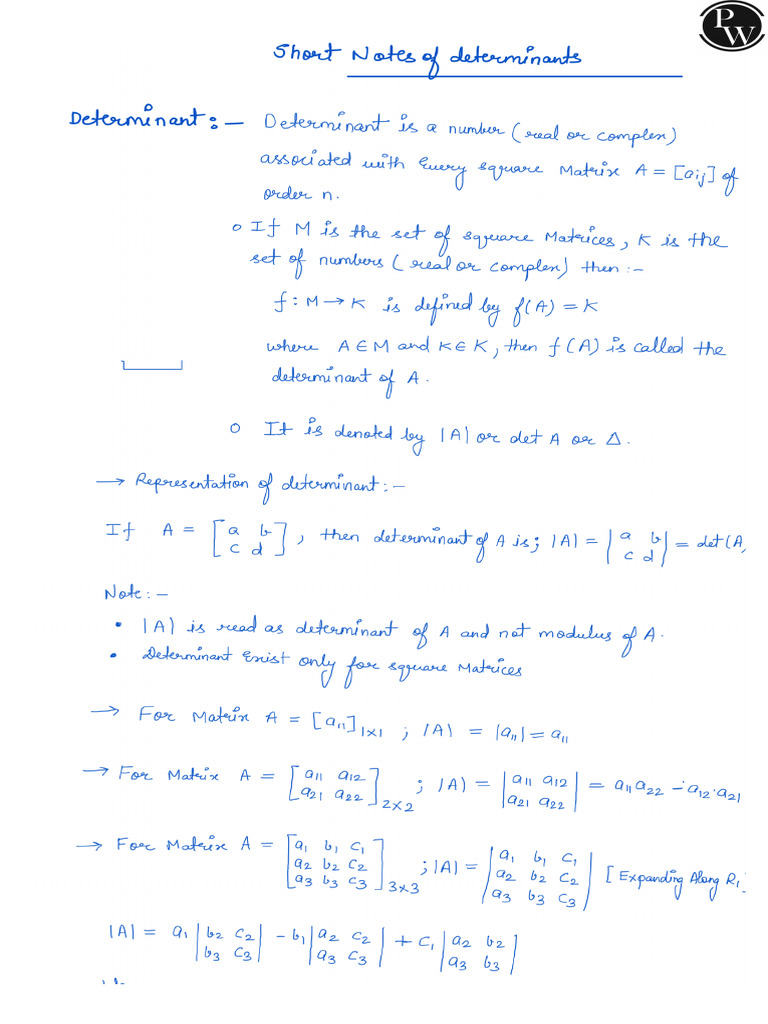 PW
Short Notes of determinants
Determinant:- Determinant is a number (real or complex)
associated with Every square Matrix A = [aij] of
order n.
o If M is the set of square Matrices, K is the
set of numbers (real or complex) then :-
f : M → K is defined by f(A) = K
where A ∈ M and K ∈ K, then f(A) is called the
determinant of A.
o It is denoted by |A| or det A or Δ.
→ Representation of determinant:-
If A = [a b; c d], then determinant of A is; |A| = |a b; c d| = det(A,
Note:-
• |A| is read as determinant of A and not modulus of A.
• Determinant Exist only for square Matrices
→ For Matrix A = [a11]1×1 ; |A| = |a11| = a11
→ For Matrix A = [a11 a12; a21 a22]2×2 ; |A| = |a11 a12; a21 a22| = a11a22 - a12·a21
→ For Matrix A = [a1 b1 c1; a2 b2 c2; a3 b3 c3]3×3 ; |A| = |a1 b1 c1; a2 b2 c2; a3 b3 c3| [Expanding Along R1]
|A| = a1|b2 c2; b3 c3| - b1|a2 c2; a3 c3| + c1|a2 b2; a3 b3|